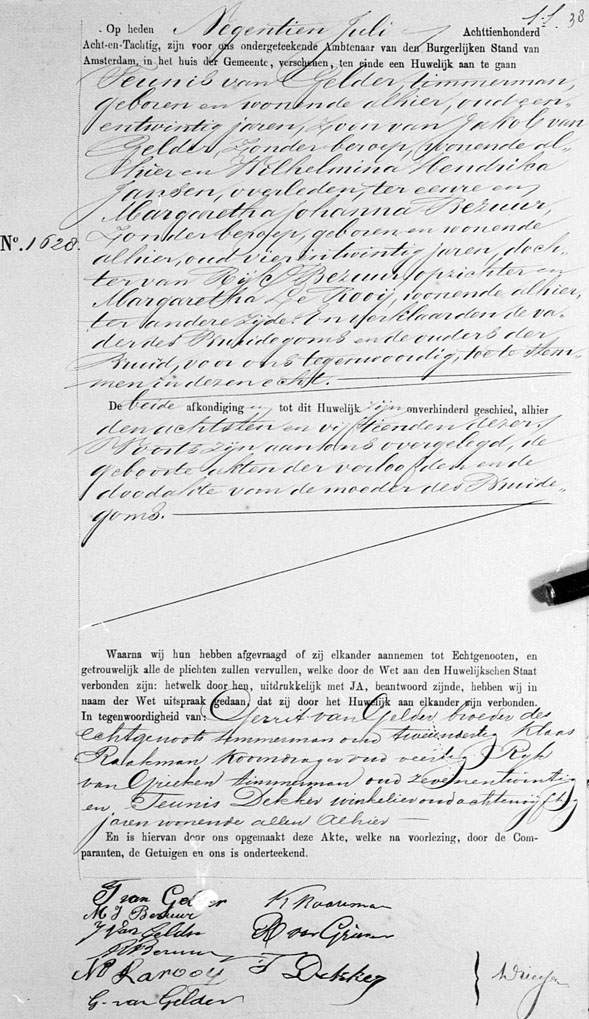 1.1. 38
Op heden Negentien Juli Achttienhonderd
Acht-en-Tachtig, zijn voor ons ondergeteekende Ambtenaar van den Burgerlijken Stand van
Amsterdam, in het huis der Gemeente, verschenen, ten einde een Huwelijk aan te gaan
Teunis van Gelder, timmerman,
geboren en wonende alhier, oud zen-
entwintig jaren, zoon van Jakob van
Gelder, zonder beroep, wonende al-
hier en Wilhelmina Hendrika
Jansen, overleden, ter eenre en
Margaretha Johanna Bezuur,
No. 1628. zonder beroep, geboren en wonende
alhier, oud vierentwintig jaren, doch-
ter van Bezuur, opzichter en
Margaretha De Rooij, wonende alhier,
ter andere zijde. En verklaarden de va-
der des Bruidegoms en de ouders der
Bruid, voor ons tegenwoordig, toe te stem-
men in dezen echt.
De beide afkondigingen tot dit Huwelijk zijn onverhinderd geschied, alhier
den achtsten en vijftienden dezer.
Voorts zijn aan ons overgelegd, de
geboorteakten der verloofden en de
doodakte van de moeder des Bruide-
goms.
Waarna wij hun hebben afgevraagd of zij elkander aannemen tot Echtgenooten, en
getrouwelijk alle de plichten zullen vervullen, welke door de Wet aan den Huwelijkschen Staat
verbonden zijn: hetwelk door hen, uitdrukkelijk met JA, beantwoord zijnde, hebben wij in
naam der Wet uitspraak gedaan, dat zij door het Huwelijk aan elkander zijn verbonden.
In tegenwoordigheid van: Gerrit van Gelder, broeder des
echtgenoots timmerman oud tweeendertig Klaas
Raakman Koorndrager oud veertig Ryk
van Grieken timmerman oud zevenentwintig
en Teunis Dekker winkelier oud achtenvijftig
jaren wonende allen Alhier
En is hiervan door ons opgemaakt deze Akte, welke na voorlezing, door de Com-
paranten, de Getuigen en ons is onderteekend.
T van Gelder K Raakman
M J Bezuur
J van Gelder R van Grieken
R Bezuur
T Dekker
G. van Gelder